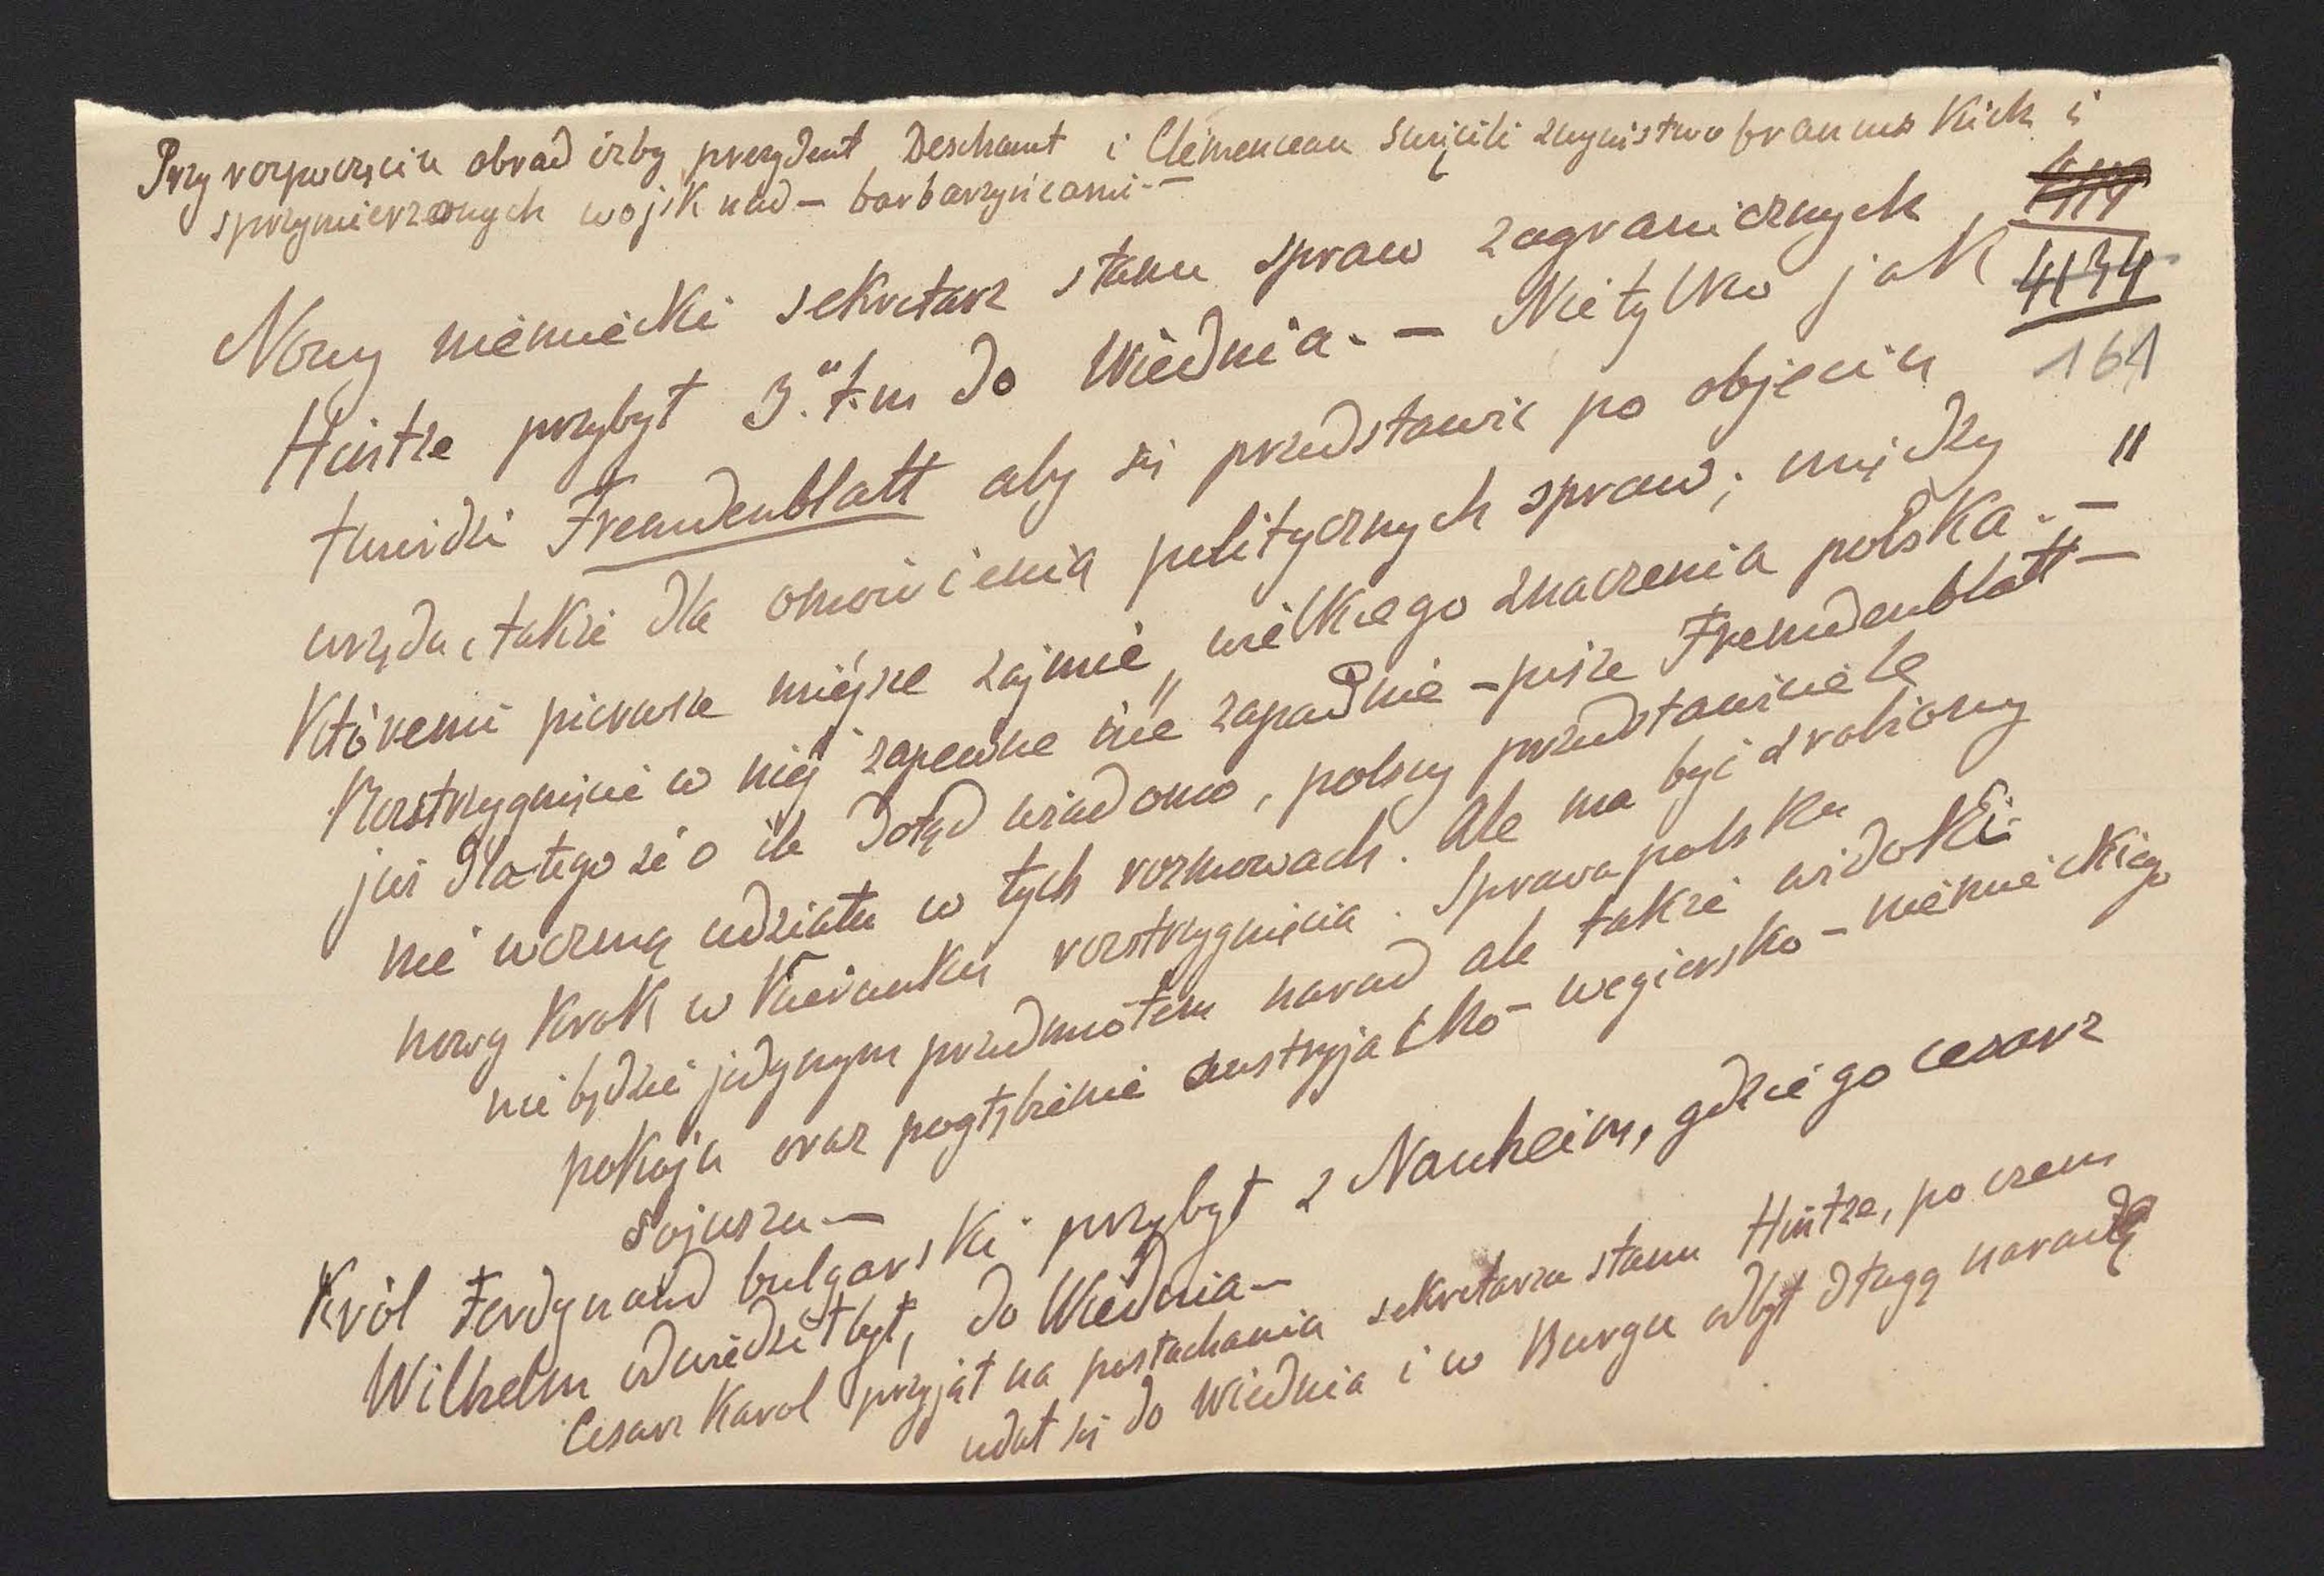 Przy rozpoczęciu obrad izby prezydent Deschant i Clémenceau święcili zwycistwo francuskich i
sprzymierzonych wojsk nad – barbarzyńcami. –
4134
161
Nowy niemiecki sekretarz stanu spraw zagranicznych,
Hintze przybył 3. t. m do Wiednia. – Nietylko jak
twierdzi Fremdenblatt aby się przedstawić po objęciu
urzędu, także dla omówienia politycznych spraw; między "
któremi pierwsze miejsce zajmie „wielkiego znaczenia polska. –
Rozstrzygnięcie w niej zapewne nie zapadnie – pisze Fremdenblatt –
już dlatego że o ile dotąd wiadomo, polscy przedstawiciele
nie wezmą udziału w tych rozmowach. Ale ma być zrobiony
nowy krok w kierunku rozstrzygnięcia. Sprawa polska
nie będzie jedynym przedmiotem narad ale także widoki
pokoju oraz pogłębienie austryjacko – wegiersko – niemieckiego
sojuszu –
Król Ferdynand bulgarski przybył z Nauheim, gdzie go cesarz
Wilhelm odwiedził był, do Wiednia –
Cesarz Karol przyjął na posłuchaniu sekretarza stanu Hintze, po czem
udał się do Wiednia i w Burgu odbył długą naradę